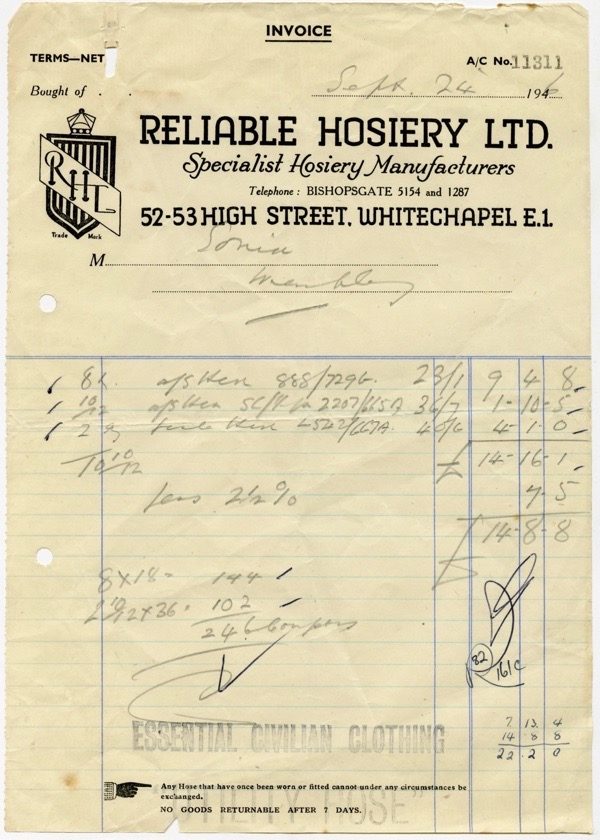 INVOICE
TERMS—NET
A/C No. 11311
Bought of . .
Sept. 24 1946
RHL
Trade Mark
RELIABLE HOSIERY LTD.
Specialist Hosiery Manufacturers
Telephone : BISHOPSGATE 5154 and 1287
52-53 HIGH STREET, WHITECHAPEL E.1.
M Sonia
Wembley
8 888/729 23/1 9 4 8
10/12 2207/665A 36/7 1-10-5
2 4542/667A 40/6 4-1-0
10 10/12 14-16-1
less 2½% 7-5
14-8-8
8 x 18 = 144
2 10/12 x 36 = 102
246 Coupons
82
161C
7 13 4
14 8 8
22 2 0
ESSENTIAL CIVILIAN CLOTHING
Any Hose that have once been worn or fitted cannot under any circumstances be
exchanged.
NO GOODS RETURNABLE AFTER 7 DAYS.
HOSE"